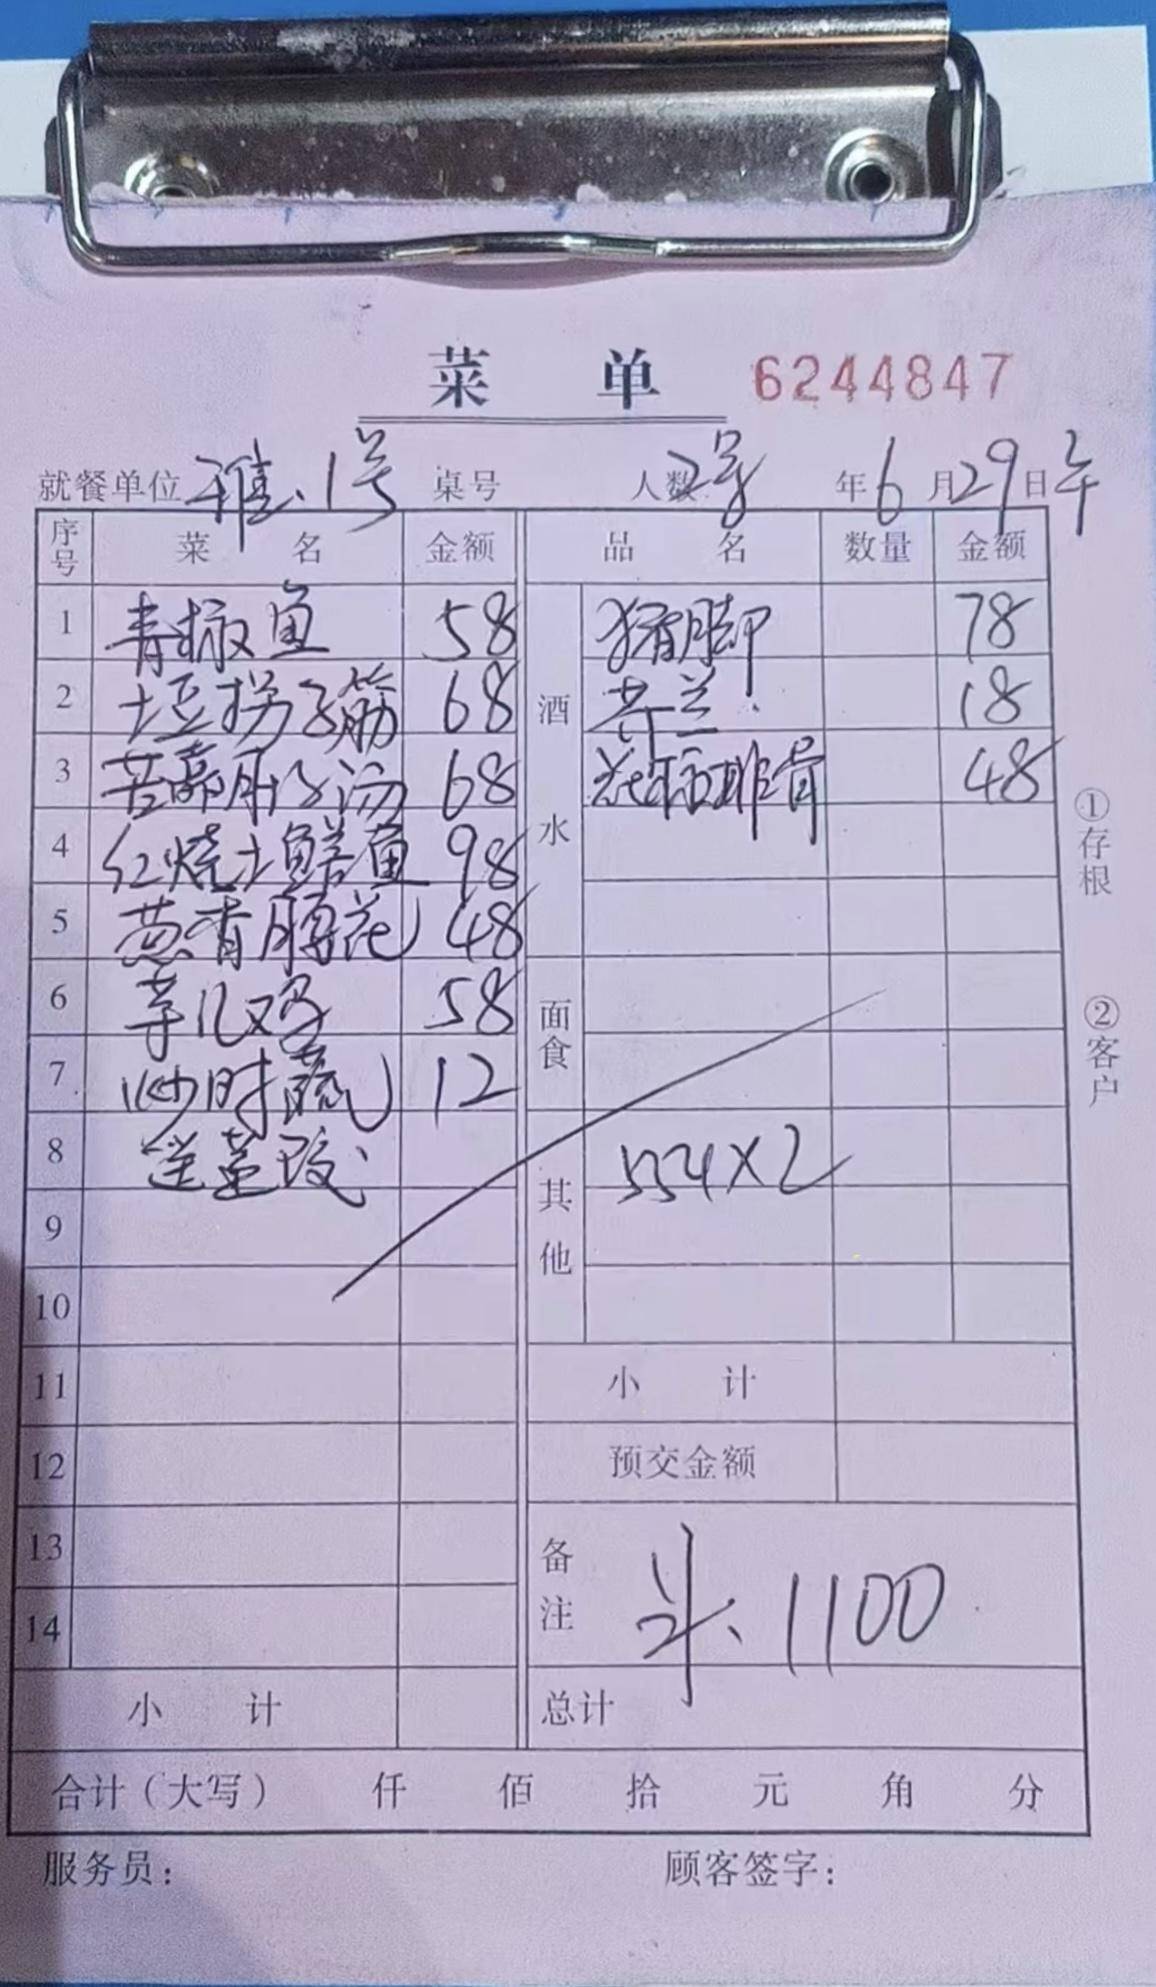 菜 单 6244847
就餐单位 雅、1号 桌号 人数 2号 年 6 月 29 日 午
序号 菜 名 金额 品 名 数量 金额
1 青椒鱼 58 猪脚 78
2 土豆拐子筋 68 芥兰 18
3 苦藠肚子汤 68 花椒排骨 48
4 红烧土鳝鱼 98
5 葱香腰花 48
6 芋儿鸡 58
7 炒时蔬 12
8
9
10
11
12
13
14
酒水
面食
其他 554×2
小 计
预交金额
备注 共、1100
小 计 总计
合计（大写） 仟 佰 拾 元 角 分
服务员： 顾客签字：
①存根
②客户